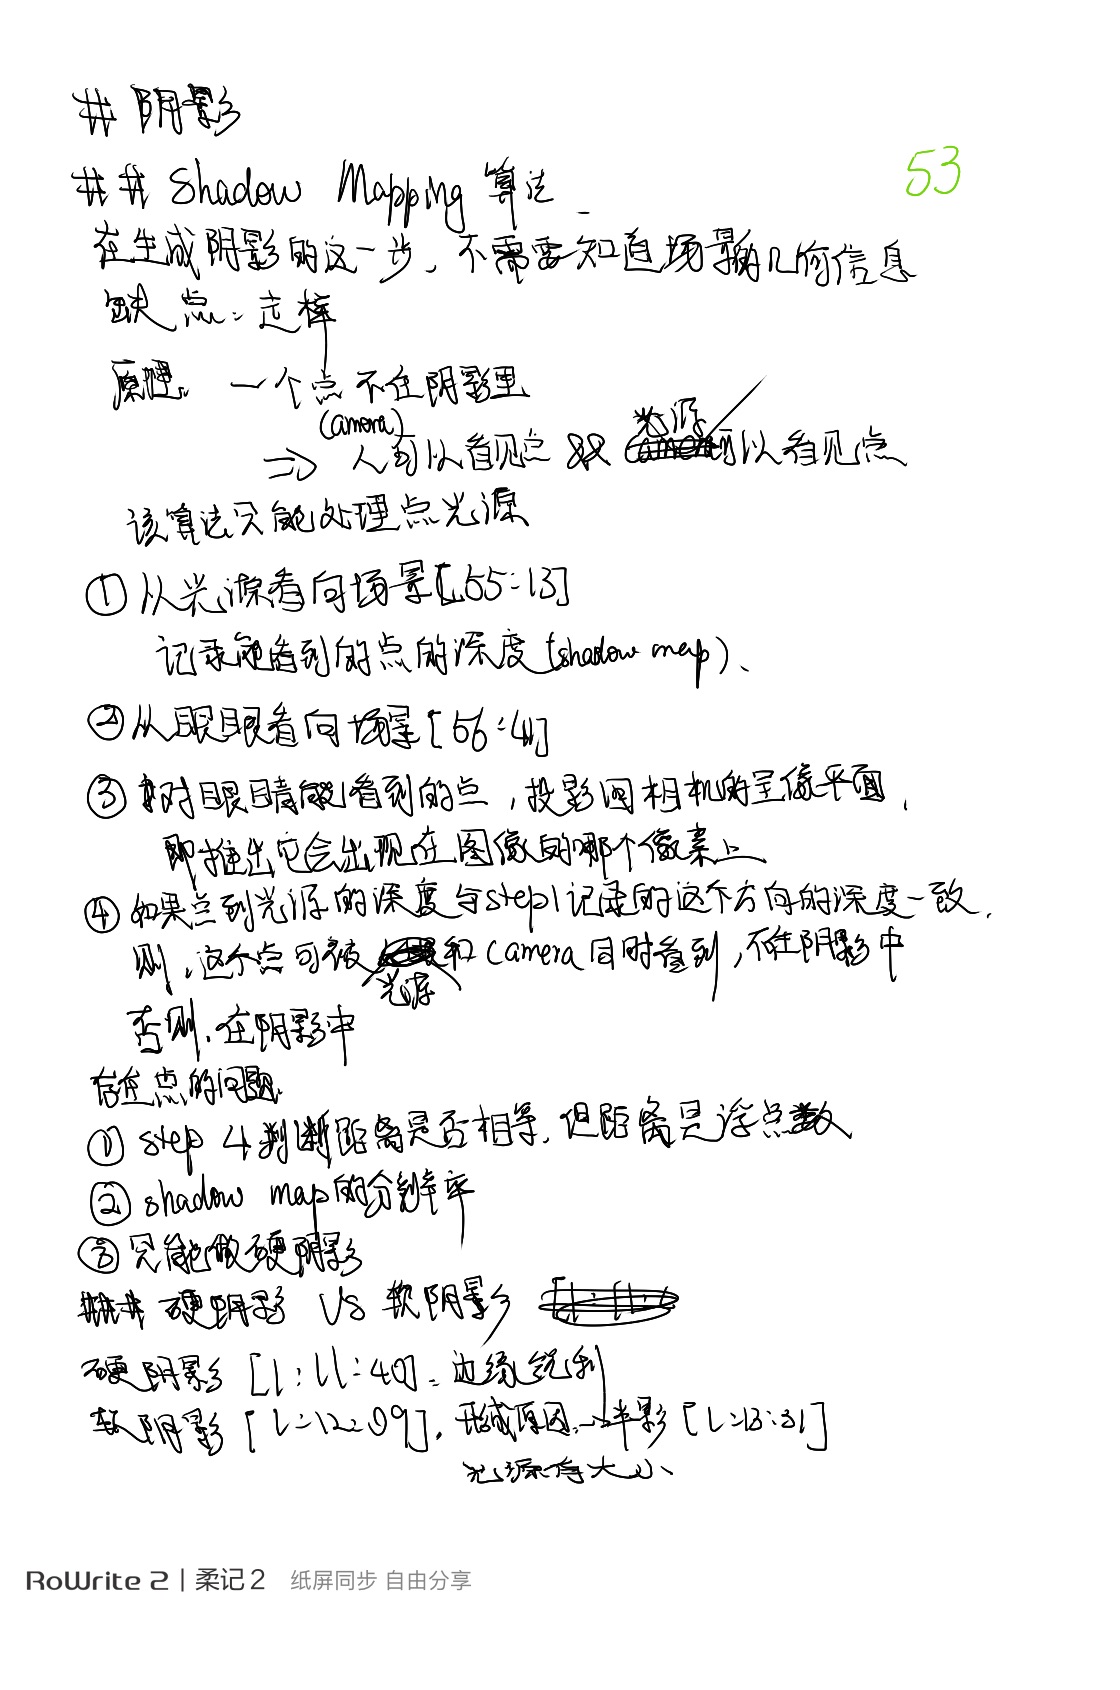 # 阴影
53
## Shadow Mapping 算法
在生成阴影的这一步，不需要知道场景的几何信息
缺点：走样
原理： 一个点不在阴影里
(camera) 光源
=> 人可以看见点 && 可以看见点
该算法只能处理点光源
① 从光源看向场景[55:13]
记录能看到的点的深度(shadow map)、
② 从眼眼看向场景[56:41]
③ 对眼睛能看到的点，投影回相机的呈像平面，
即推出它会出现在图像的哪个像素上
④ 如果点到光源的深度与step1记录的这个方向的深度一致，
则，这个点可被 和camera同时看到，不在阴影中
光源
否则，在阴影中
存在点的问题
① step 4判断距离是否相等，但距离是浮点数
② shadow map的分辨率
③ 只能做硬阴影
### 硬阴影 VS 软阴影
硬阴影 [1:11:40]：边缘锐利
软阴影 [1:12:09]，形成原因：半影 [1:13:31]
光源有大小
RoWrite 2 | 柔记 2 纸屏同步 自由分享